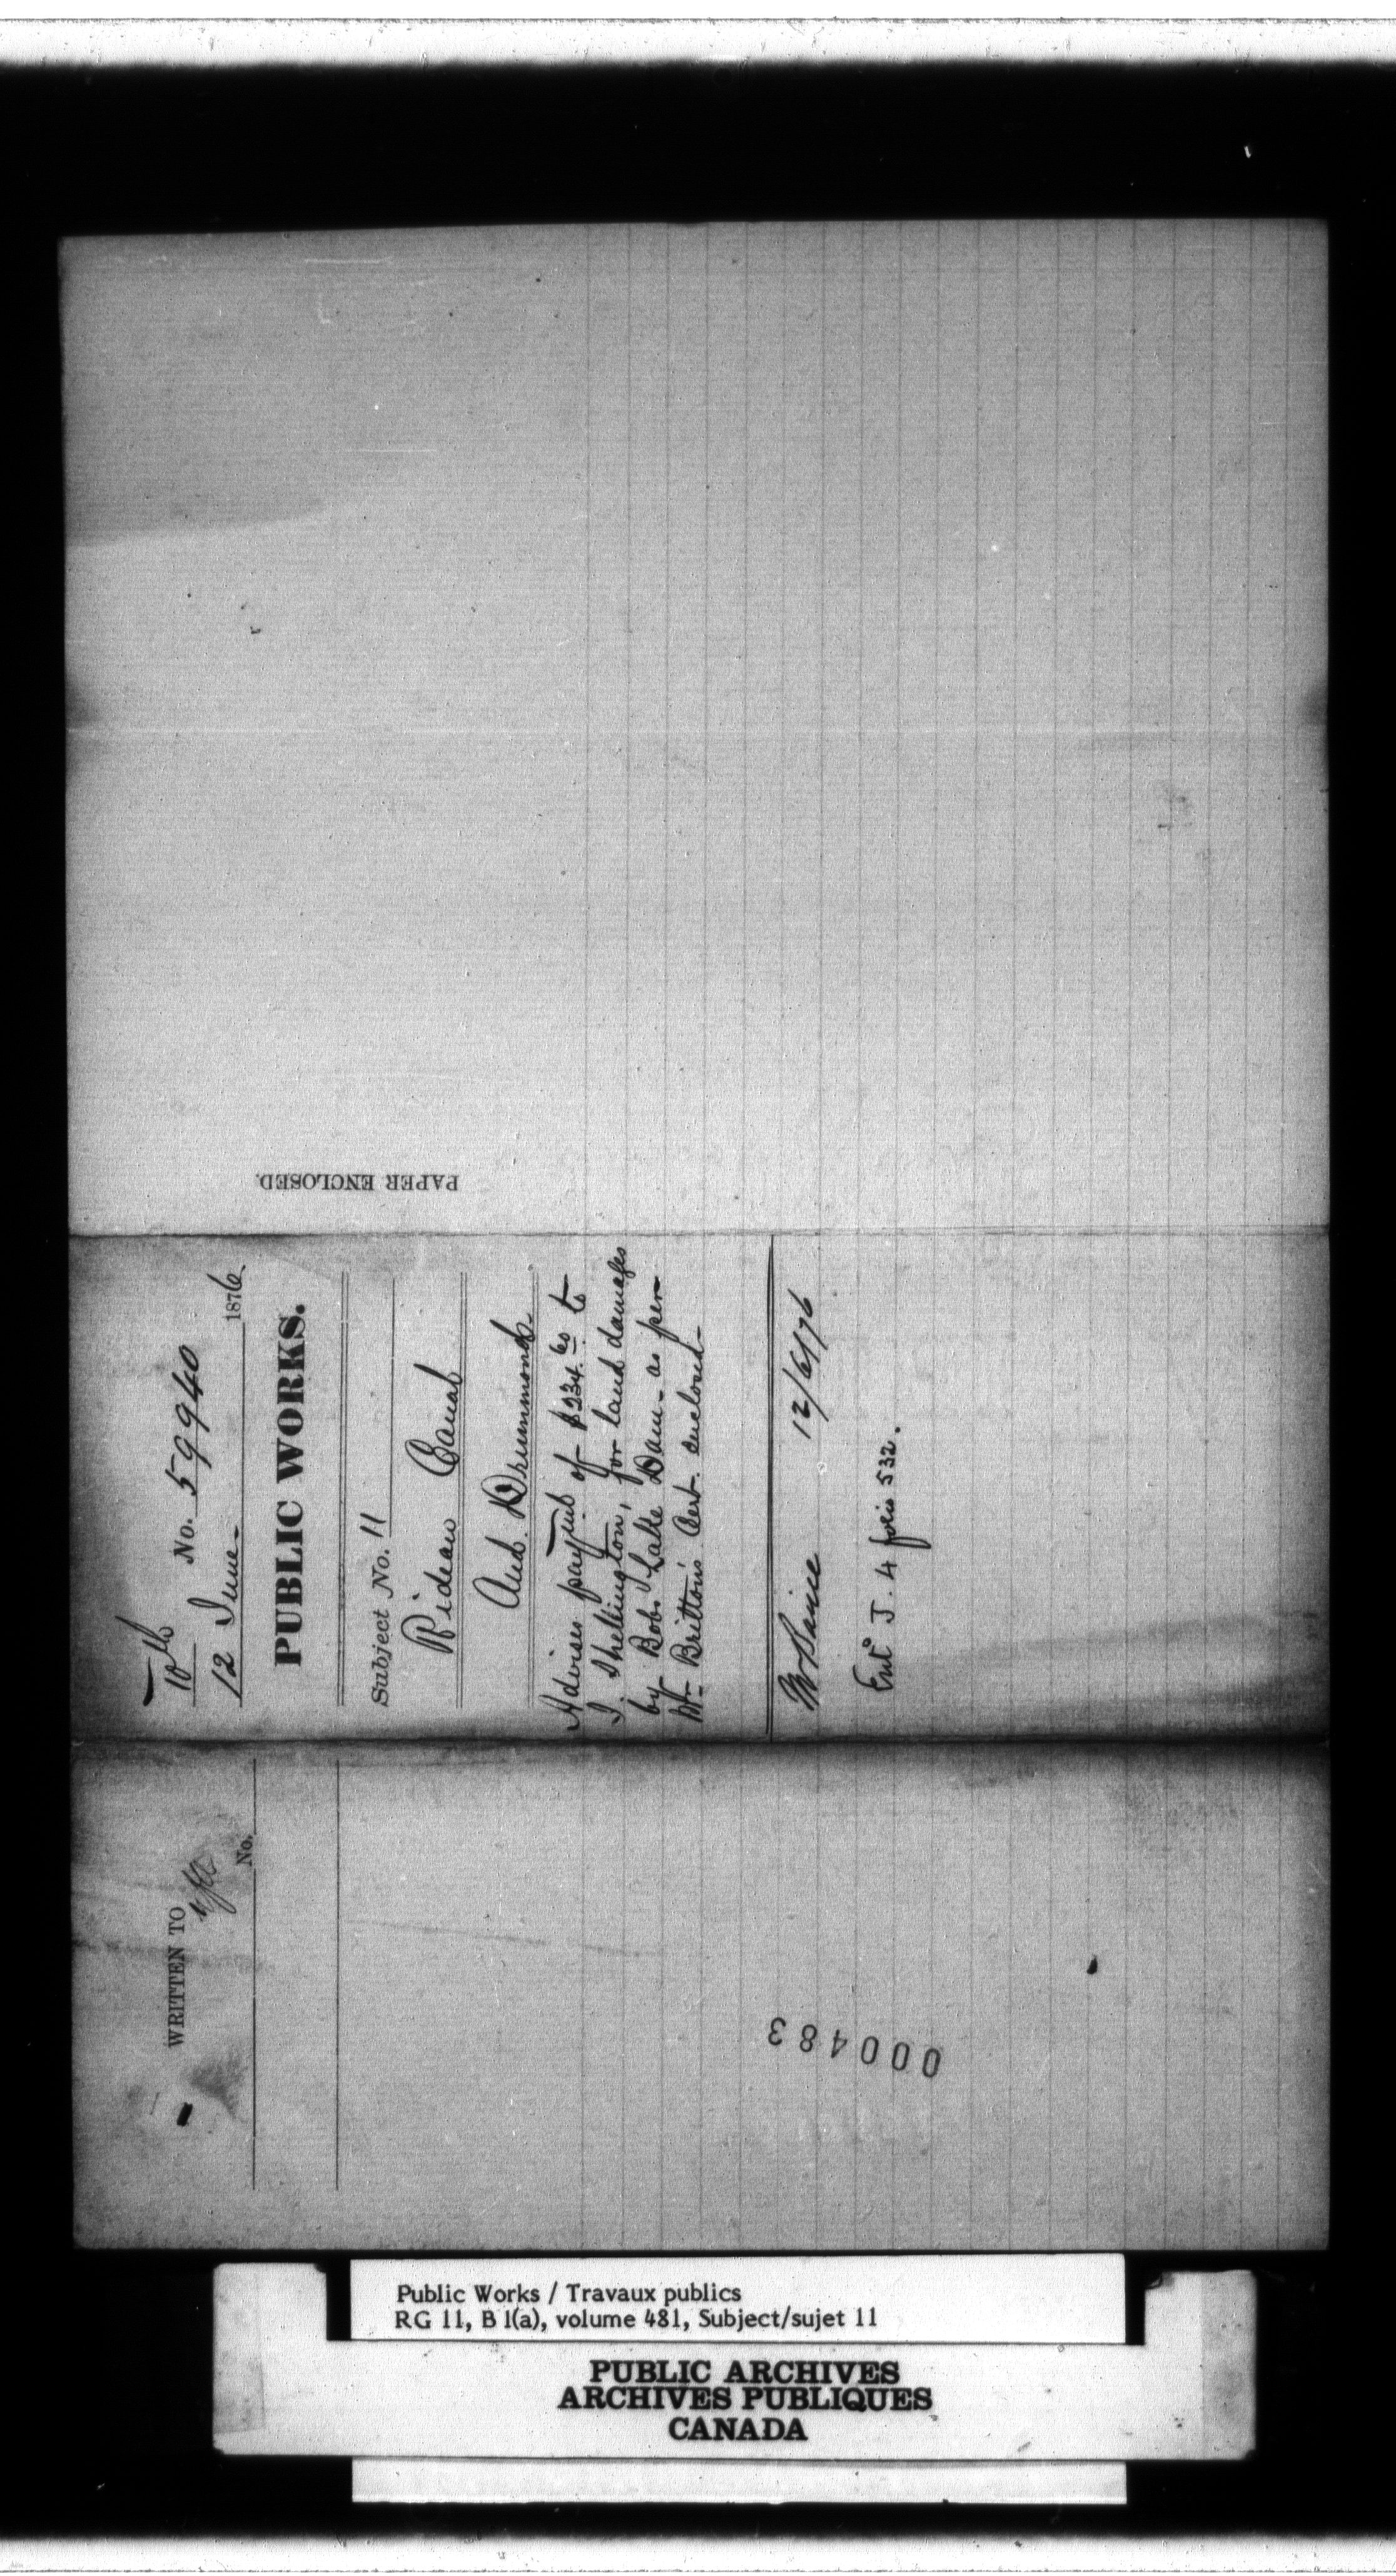 PAPER ENCLOSED.
10th No. 59940
12 June - 1876
PUBLIC WORKS.
Subject No. 11
Rideau Canal
And. Drummond
Advises paymt of $234.60 to
I. Shellington, for land damages
by Bobs Lake Dam - as per
Mr Britton's Cert. enclosed -
12/6/76
Entd J. 4 folio 532.
WRITTEN TO
No.
000483
Public Works / Travaux publics
RG 11, B 1(a), volume 481, Subject/sujet 11
PUBLIC ARCHIVES
ARCHIVES PUBLIQUES
CANADA